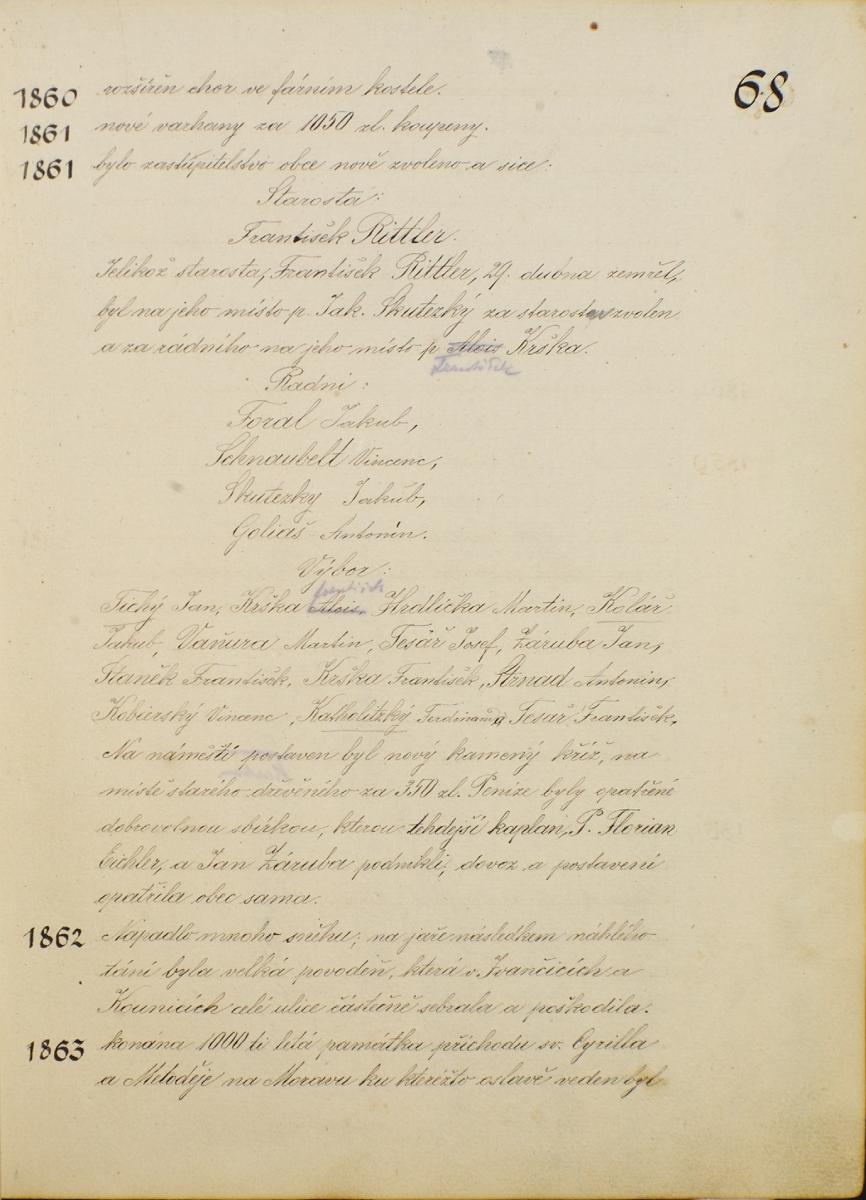 68
1860 rozšířěn chor ve fárním kostele.
1861 nové varhany za 1050 zl. koupeny.
1861 bylo zastupitelstvo obce nově zvoleno a sice:
Starosta:
František Rittler.
Jelikož starosta, František Rittler, 29. dubna zemřel,
byl na jeho místo p. Jak. Skutezký za starostu zvolen
a za rádního na jeho místo p Alois Krška.
František
Radní:
Foral Jakub,
Schnaubelt Vincenc,
Skutezky Jakub,
Goliaš Antonín.
Výbor:
František
Tichý Jan, Krška Alois, Hrdlička Martin, Kolář
Jakub, Vaňura Martin, Tesář Josef, Záruba Jan,
Staněk František, Krška František, Strnad Antonin,
Kobierský Vincenc, Katholitzký Ferdinand, Tesař František.
Na náměstí postaven byl nový kamený kříž, na
místě starého dřevěného za 350 zl. Peníze byly opatřené
dobrovolnou sbírkou, kterou tehdejší kaplan, P. Florian
Eichler, a Jan Záruba podnikli, dovoz a postavení
opatřila obec sama.
1862 Napadlo mnoho sněhu; na jaře následkem náhlého
tání byla velká povodeň, která v Ivančicích a
Kounicích celé ulice částečně sebrala a poškodila.
1863 konána 1000 ti letá památka příchodu sv. Cyrilla
a Metoděje na Moravu ku kteréžto oslavě veden byl